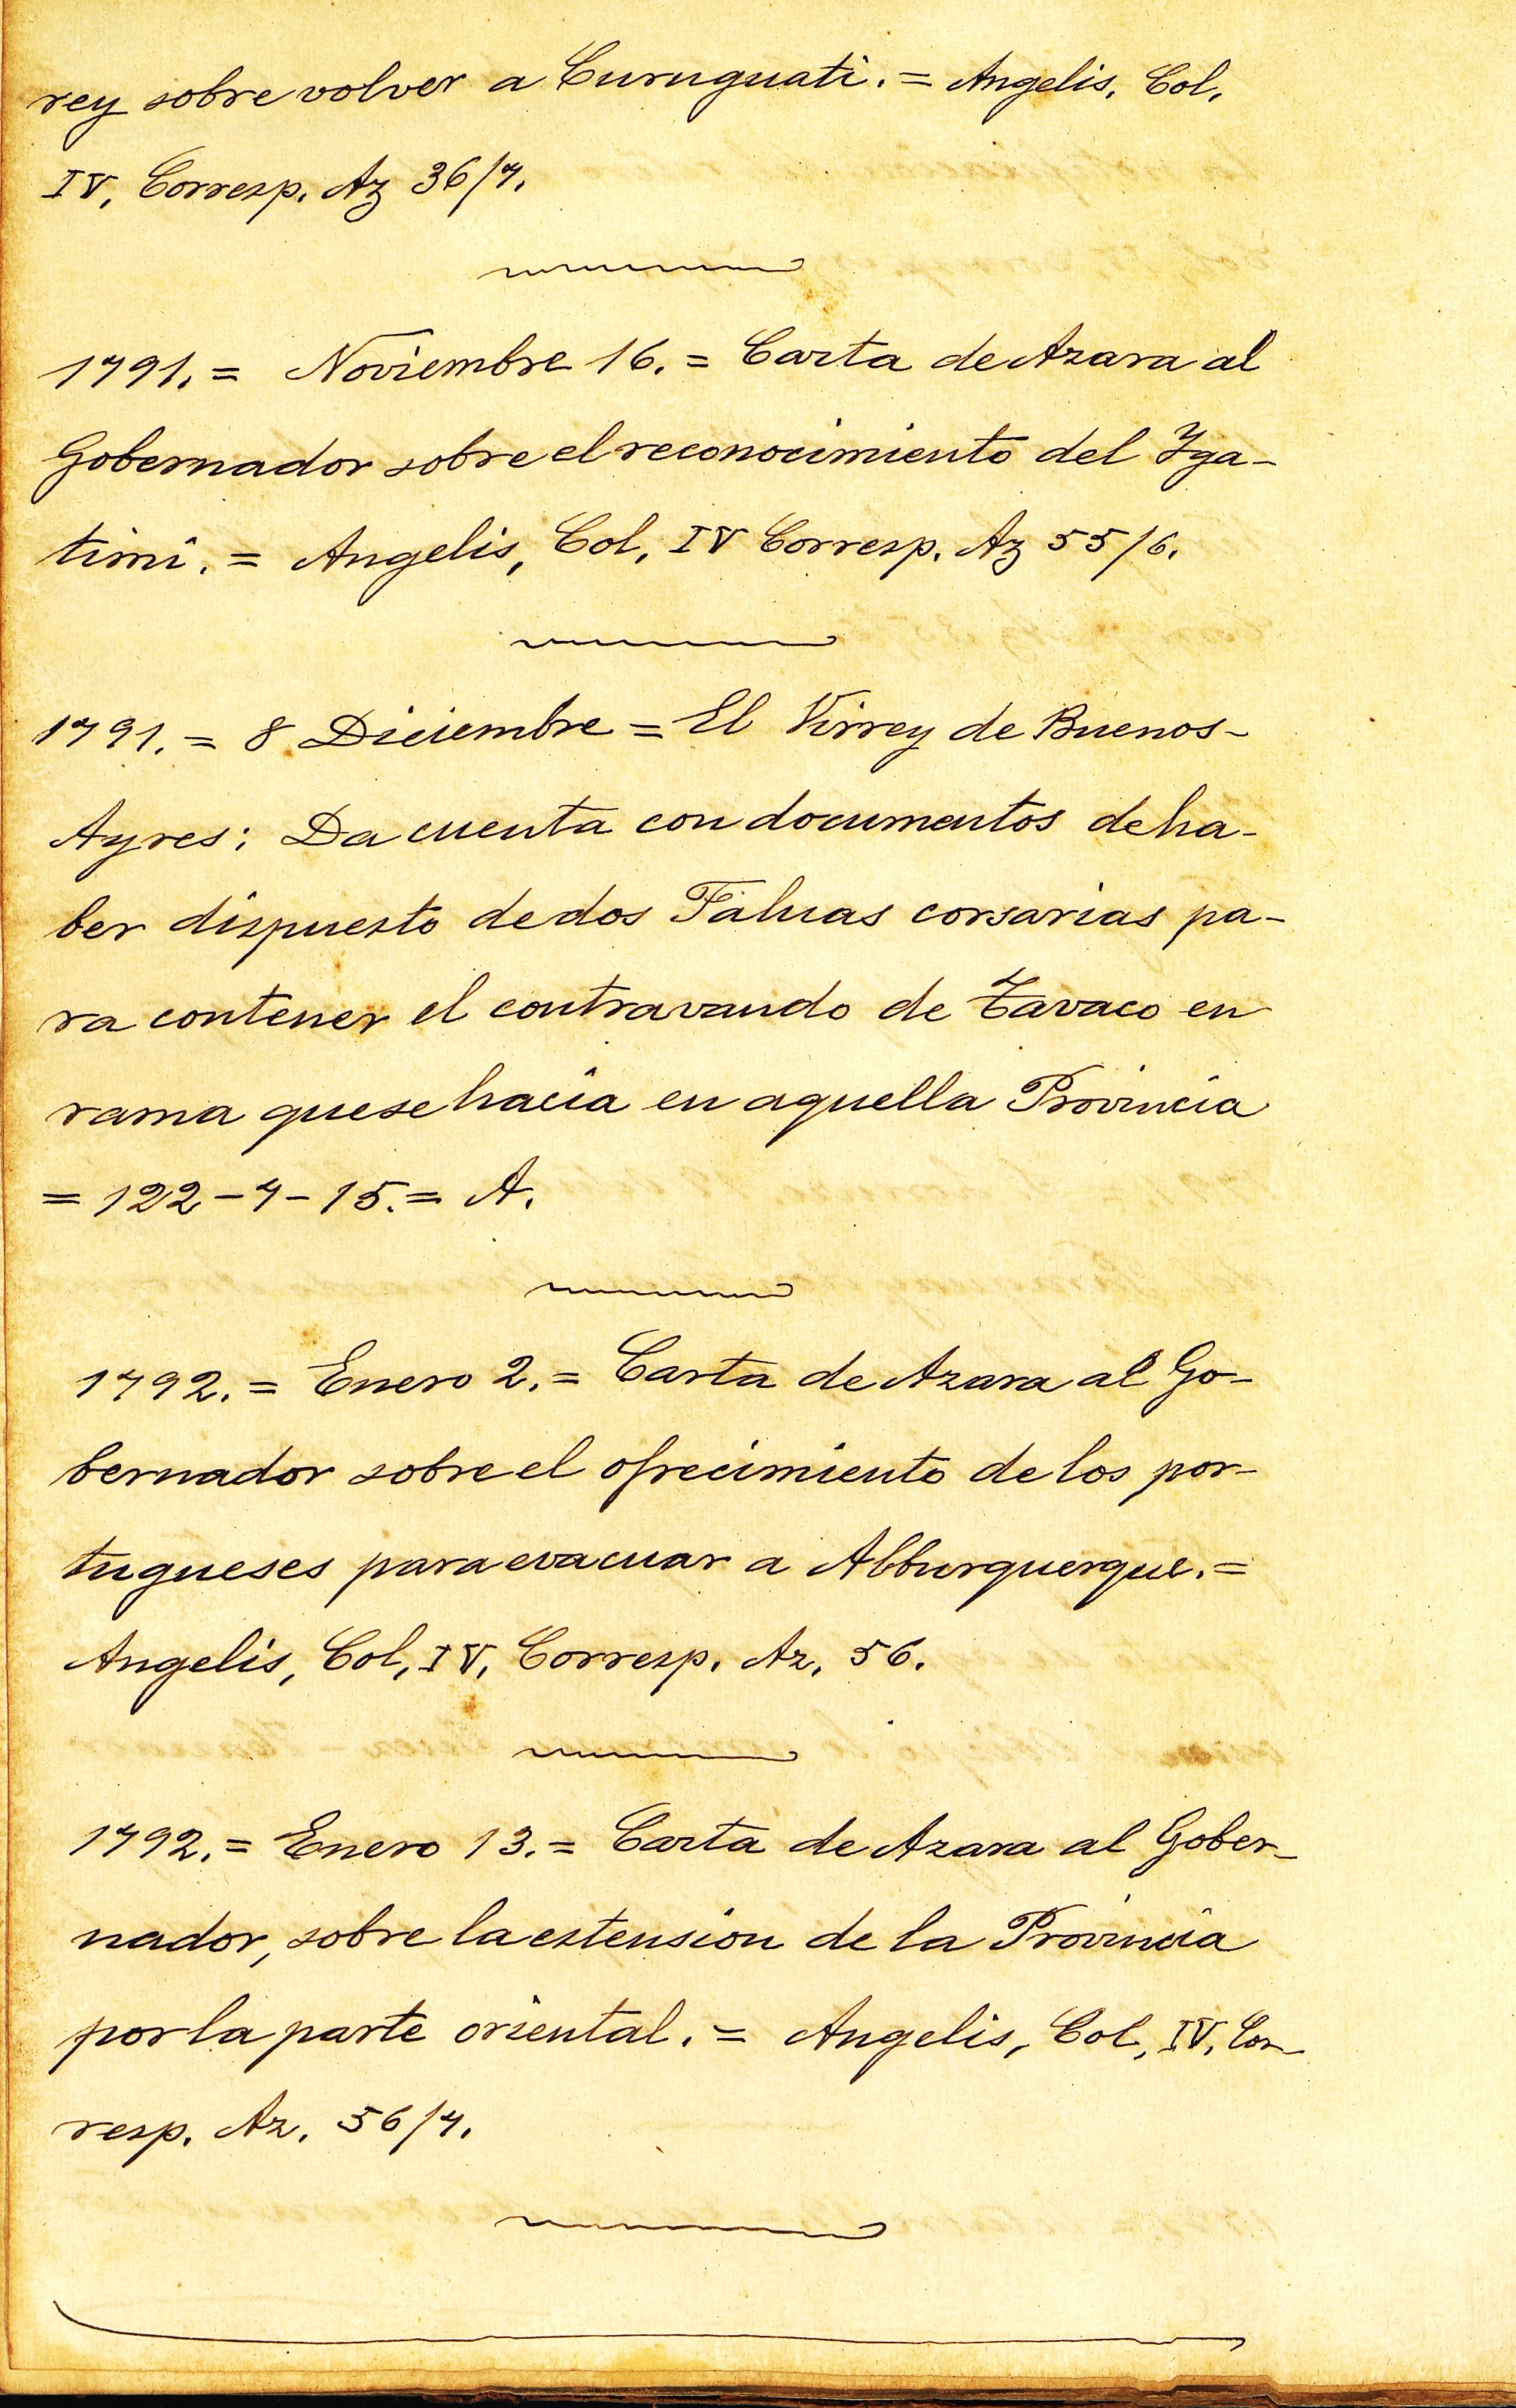 rey sobre volver a Curuguati. = Angelis, Col,
IV, Corresp. Az 36/7.
1791. = Noviembre 16. = Carta de Azara al
Gobernador sobre el reconocimiento del Yga-
timi. = Angelis, Col, IV Corresp. Az 55/6.
1791. = 8 Diciembre = El Virrey de Buenos-
Ayres; Da cuenta con documentos de ha-
ber dispuesto de dos Faluas corsarias pa-
ra contener el contravando de Tavaco en
rama que se hacia en aquella Provincia
= 122-4-15. = A.
1792. = Enero 2. = Carta de Azara al Go-
bernador sobre el ofrecimiento de los por-
tugueses para evacuar a Alburquerque. =
Angelis, Col, IV, Corresp. Az. 56.
1792. = Enero 13. = Carta de Azara al Gober-
nador, sobre la estension de la Provincia
por la parte oriental. = Angelis, Col, IV, Cor-
resp. Az. 56/7.